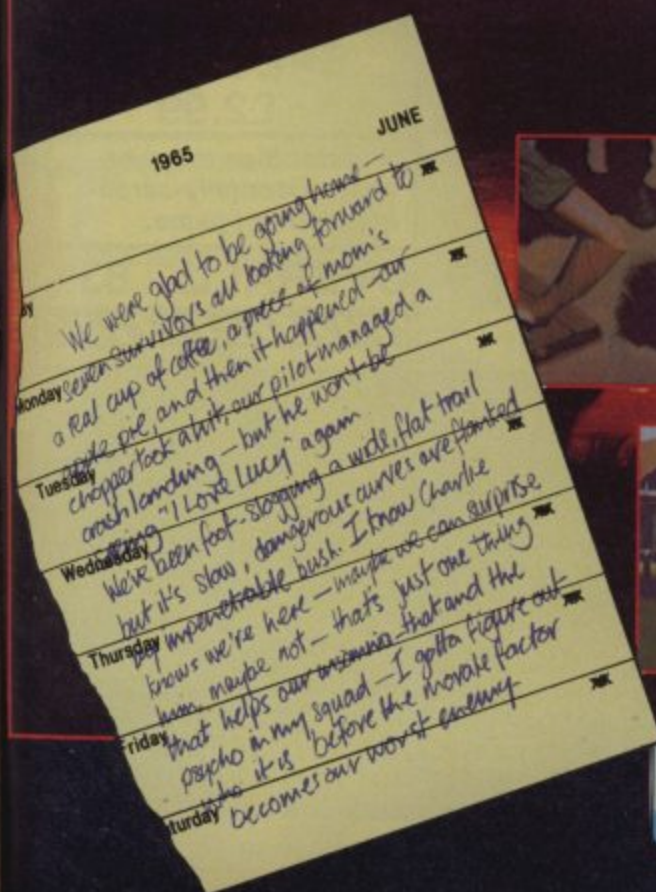 1965 JUNE
We were glad to be going home —
seven survivors all looking forward to
a real cup of coffee, a piece of mom's
apple pie, and then it happened — our
chopper took a hit, our pilot managed a
crash landing — but he won't be
seeing "I Love Lucy" again
We've been foot-slogging a wide, flat trail
but it's slow, dangerous curves are flanked
by impenetrable bush. I know Charlie
knows we're here — maybe we can surprise
him, maybe not — that's just one thing
that helps our insomnia — that and the
psycho in my squad — I gotta figure out
who it is before the morale factor
becomes our worst enemy
ay
Monday
Tuesday
Wednesday
Thursday
Friday
turday